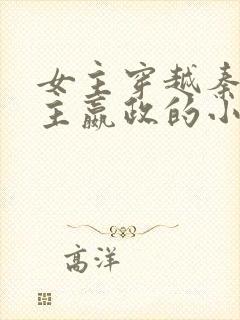 女主穿越秦
主嬴政的小
高洋